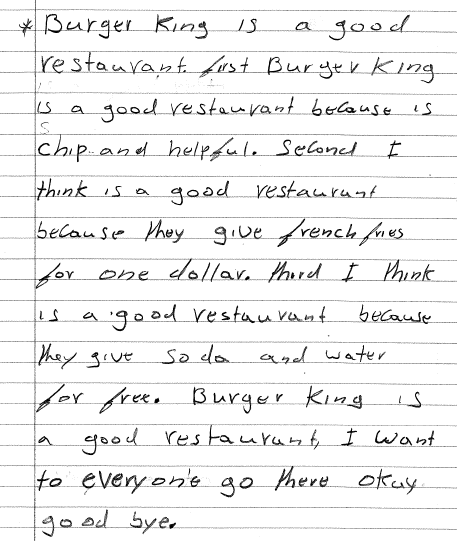 * Burger King is a good
restaurant. first Burger King
is a good restaurant because is
chip and helpful. Second I
think is a good restaurant
because they give french fries
for one dollar. third I think
is a good restaurant because
they give soda and water
for free. Burger King is
a good restaurant, I want
to everyone go there okay
good bye.